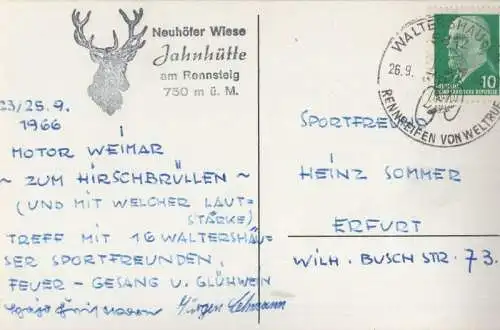 Neuhöfer Wiese
Jahnhütte
am Rennsteig
750 m ü. M.
WALTERSHAUSEN
26.9.
RENNREIFEN VON WELTRUF
10
23/25.9.
1966
MOTOR WEIMAR
~ ZUM HIRSCHBRÜLLEN ~
(UND MIT WELCHER LAUT-
STÄRKE)
TREFF MIT 16 WALTERSHÄU-
SER SPORTFREUNDEN.
FEUER - GESANG U. GLÜHWEIN
Jürgen Lehmann
SPORTFREUND
HEINZ SOMMER
ERFURT
WILH. BUSCH STR. 73.